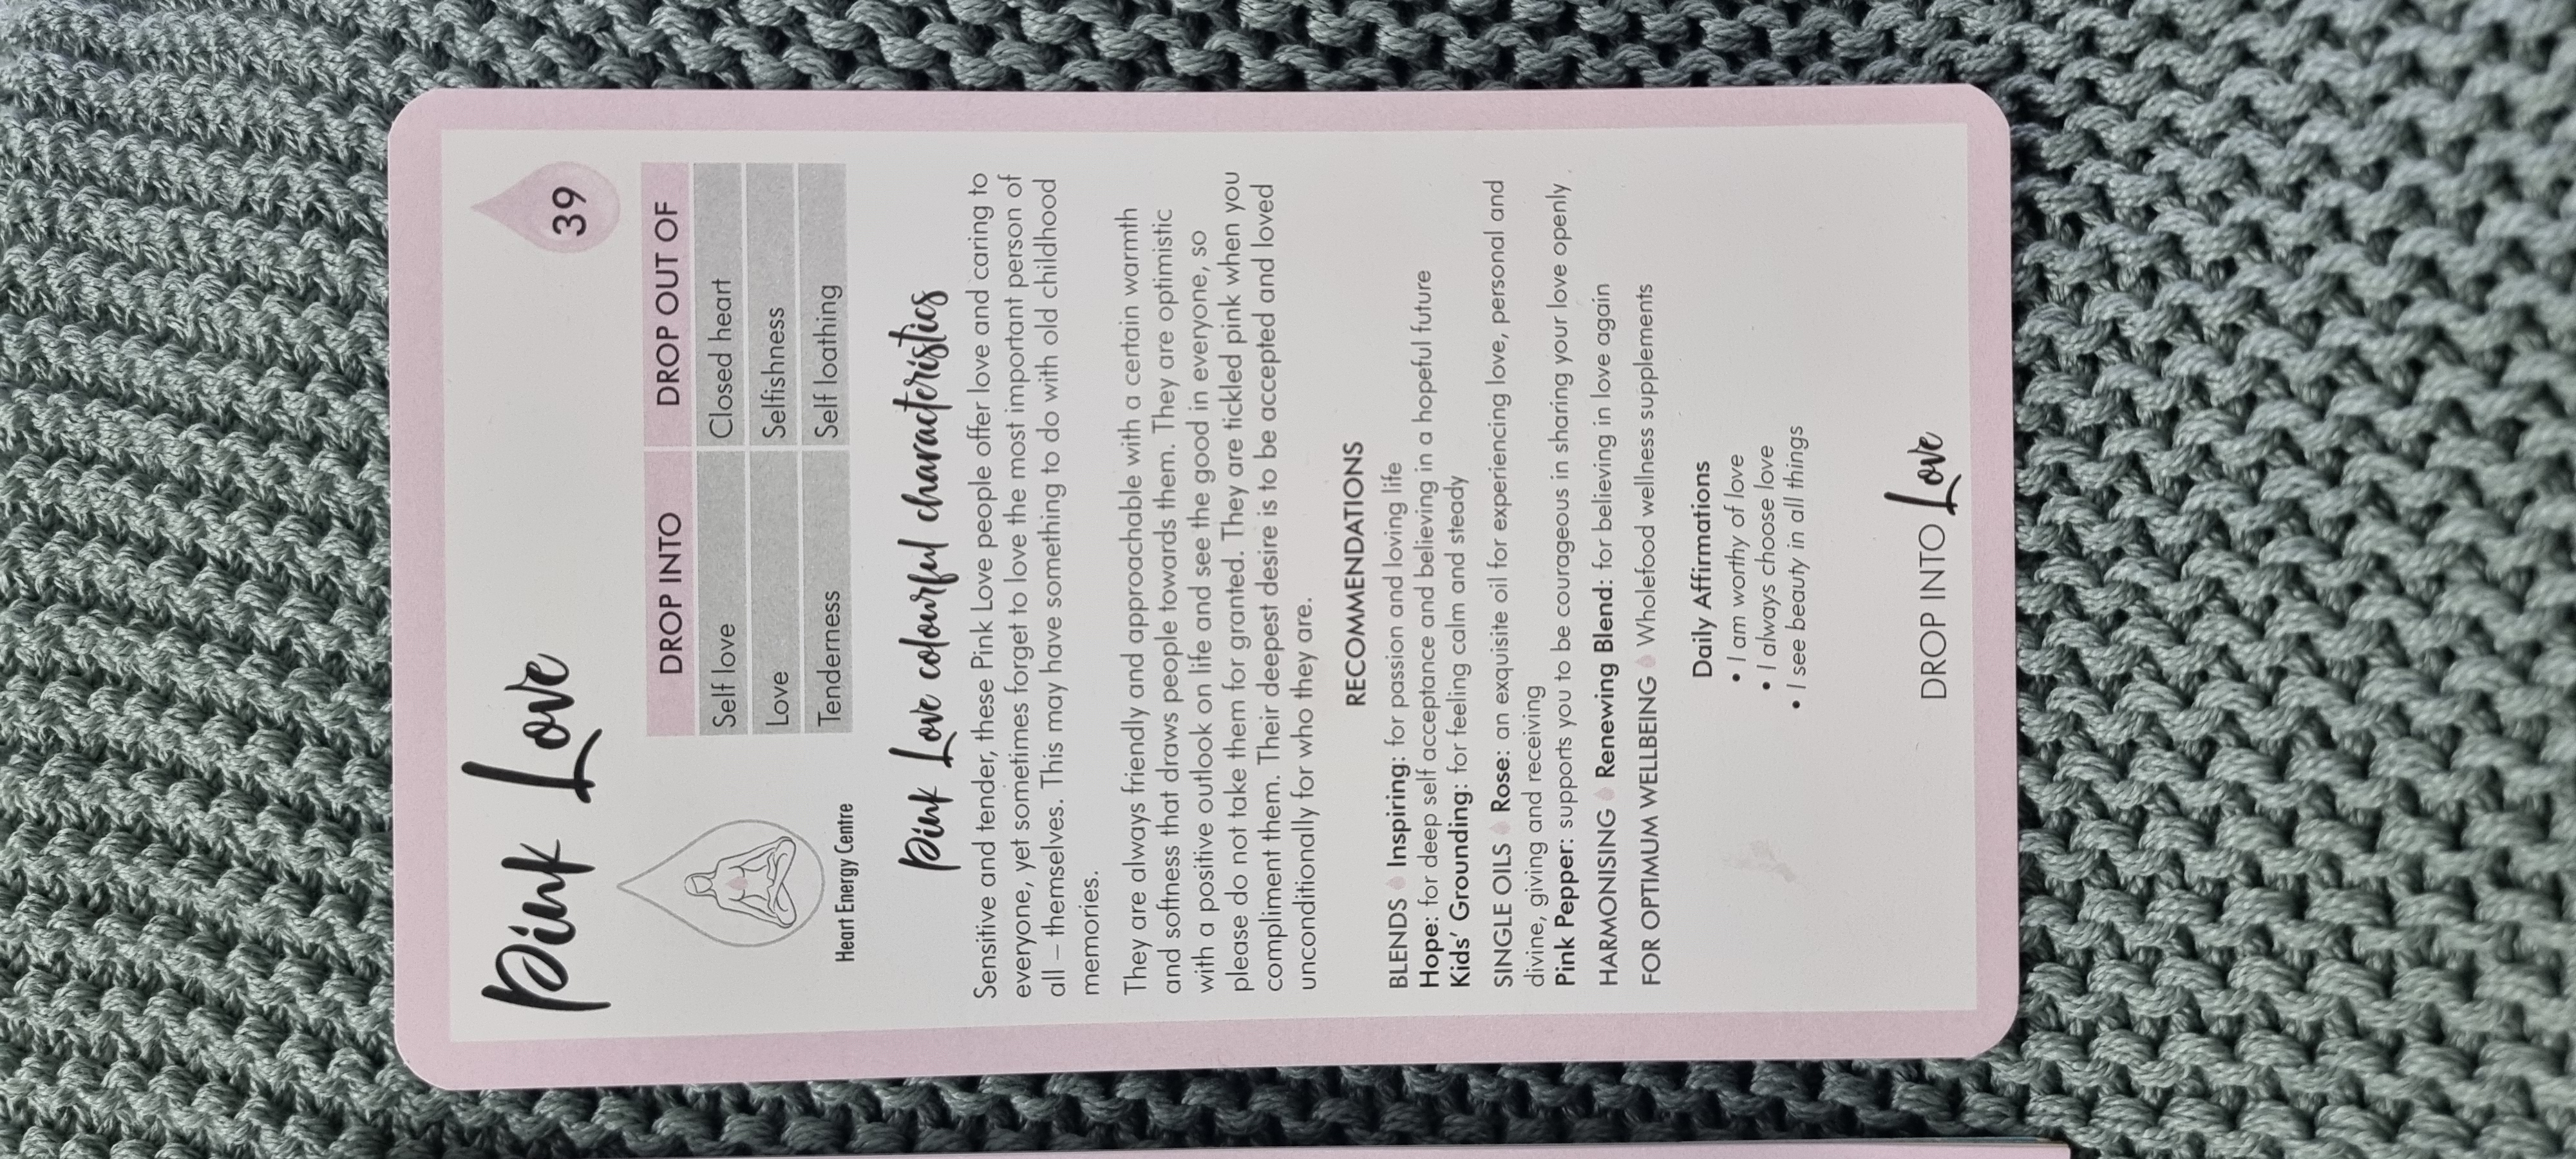 Pink Love
39
DROP INTO DROP OUT OF
Self love Closed heart
Love Selfishness
Tenderness Self loathing
Heart Energy Centre
Pink Love colourful characteristics
Sensitive and tender, these Pink Love people offer love and caring to
everyone, yet sometimes forget to love the most important person of
all – themselves. This may have something to do with old childhood
memories.
They are always friendly and approachable with a certain warmth
and softness that draws people towards them. They are optimistic
with a positive outlook on life and see the good in everyone, so
please do not take them for granted. They are tickled pink when you
compliment them. Their deepest desire is to be accepted and loved
unconditionally for who they are.
RECOMMENDATIONS
BLENDS Inspiring: for passion and loving life
Hope: for deep self acceptance and believing in a hopeful future
Kids' Grounding: for feeling calm and steady
SINGLE OILS Rose: an exquisite oil for experiencing love, personal and
divine, giving and receiving
Pink Pepper: supports you to be courageous in sharing your love openly
HARMONISING Renewing Blend: for believing in love again
FOR OPTIMUM WELLBEING Wholefood wellness supplements
Daily Affirmations
• I am worthy of love
• I always choose love
• I see beauty in all things
DROP INTO Love